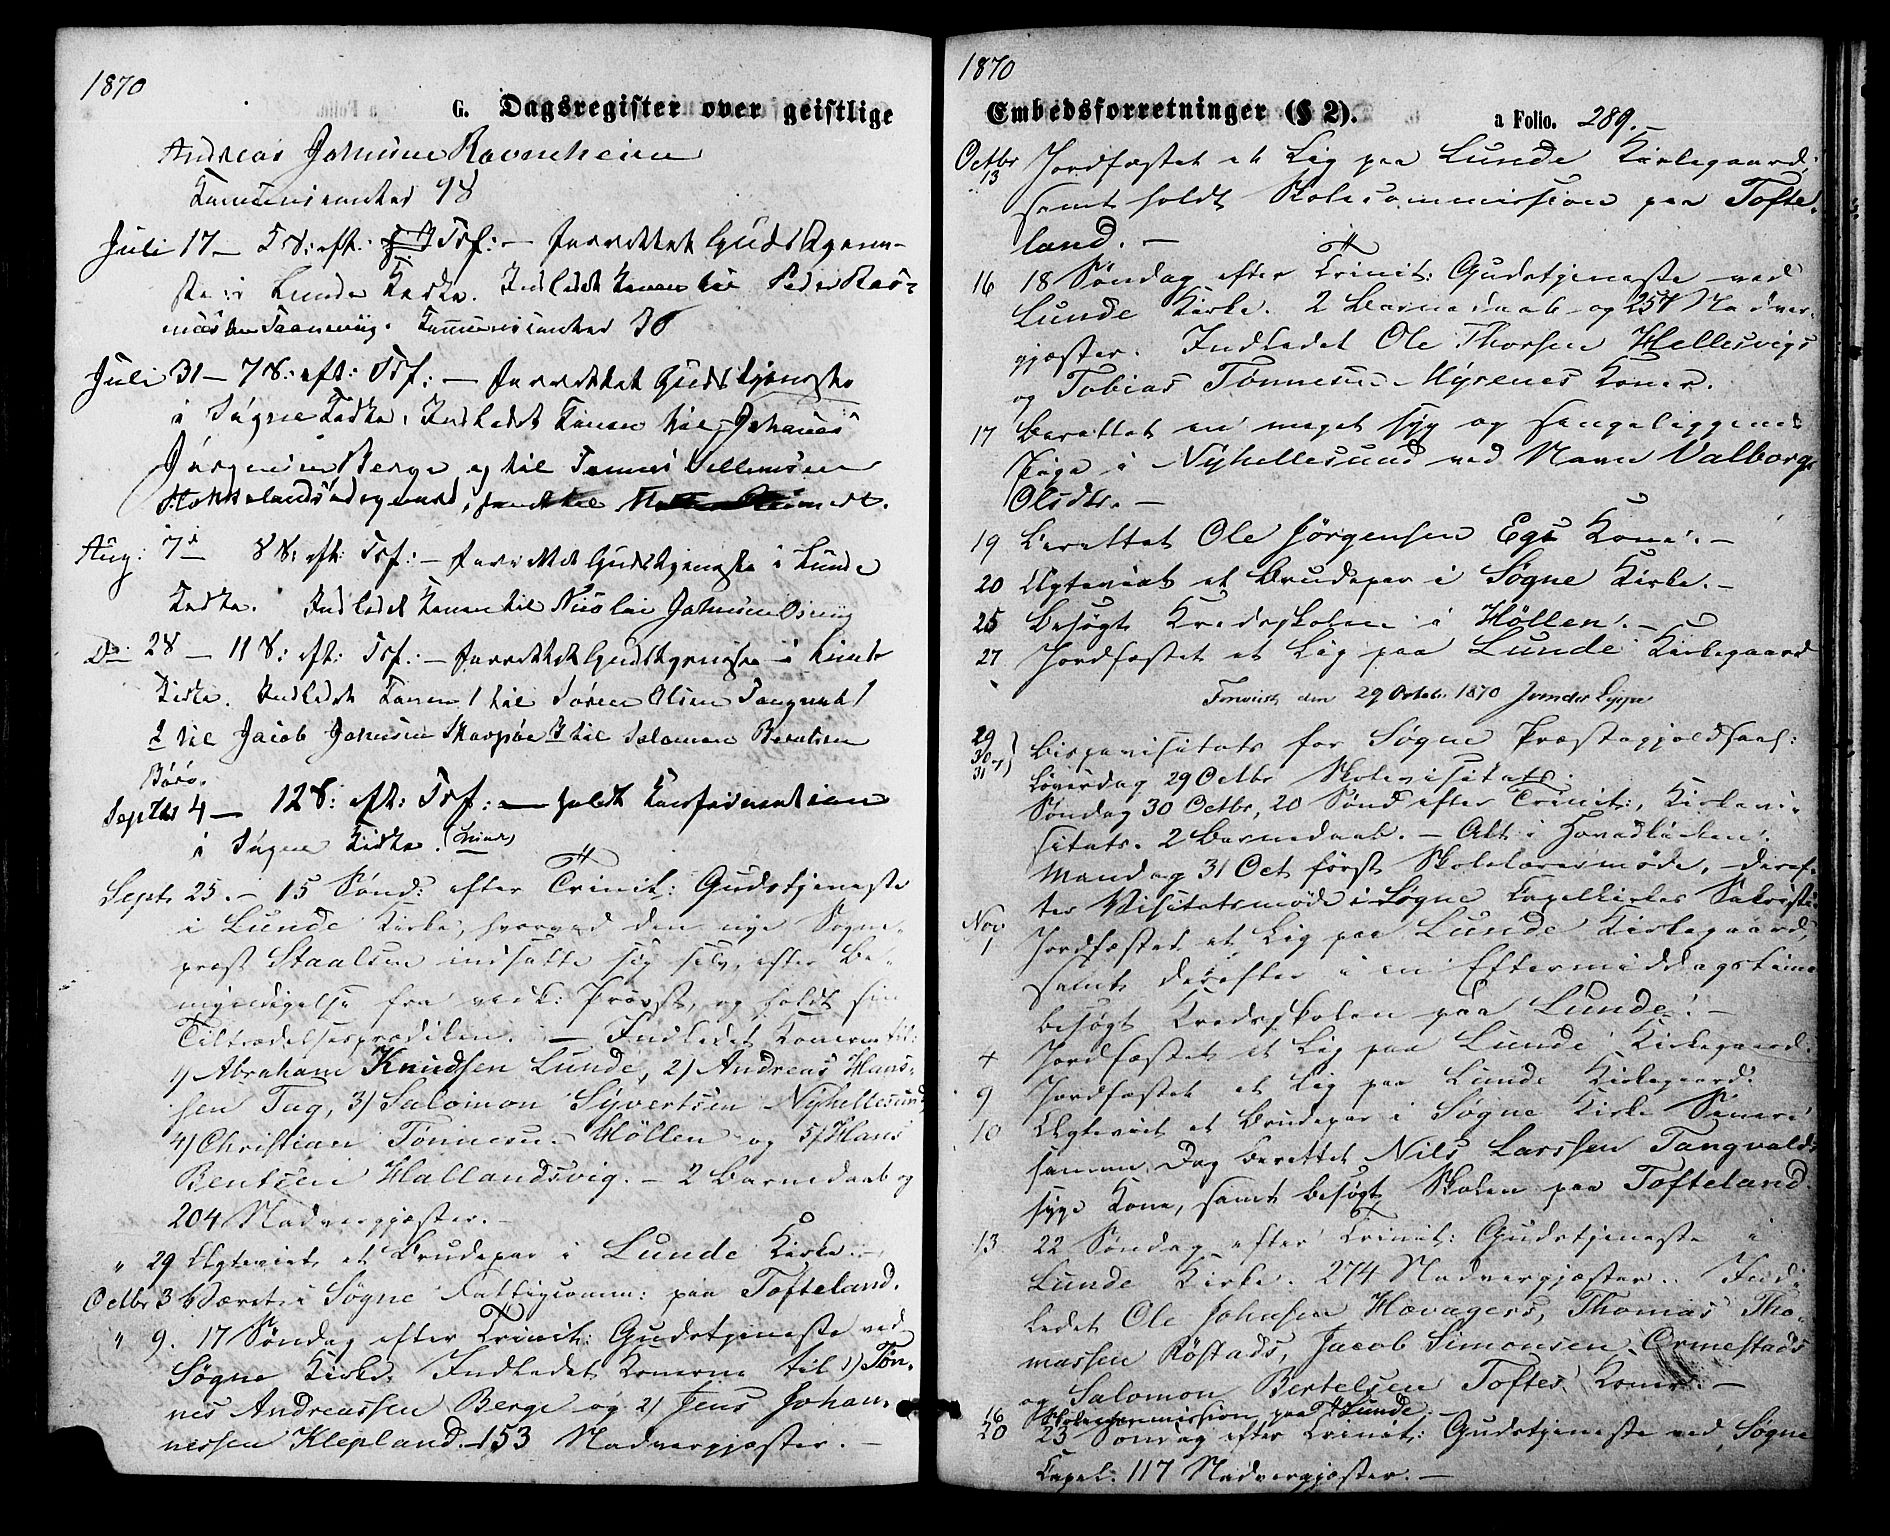 1870
G. Dagsregister over geistlige
Andreas Johnsen Ravnheien
Communicanter 98
Juli 17 – 5 S: eft: Trf: – forrettet Gudstjene-
ste i Lunde Kirke. Indledet Konen til Peder Ras-
mussen Communicanter 30
Juli 31 – 7 S: eft: Trf: – forrettet Gudstjeneste
i Søgne Kirke, Indledet Konen til Johannes
Jørgensen Berge og til Tønnes Villumsen
Aug: 7de 8 S: eft: Trf: – forrettet Gudstjeneste i Lunde
Kirke. Indledet Konen til Nicolai Johnsen
Do 28 – 11 S: eft: Trf: – forrettet Gudstjeneste i Lunde
Kirke. Indledet Konen 1 til Søren Olsen Tangvald
2 til Jacob Johnsen til Salomon Berntsen
Borø.
Septbr 4 – 12 S: eft: Trf: – holdt Confirmation
i Søgne Kirke.
Sept. 25. – 15 Sønd: efter Trinit: Gudstjeneste
i Lunde Kirke, hvorved den nye Sogne-
præst Staalsen indsatte sig selv, efter Be-
myndigelse fra vedk: Provst, og holdt sin
Tiltrædelsesprædiken. – Indledet Konerne til:
1) Abraham Knudsen Lunde, 2) Andreas Hans-
sen Tag, 3) Salomon Syvertsen Nyhellesund,
4) Christian Tønnesen Høllen og 5) Hans
Bentsen Hallandsvig. – 2 Barnedaab og
204 Nadvergjæster. –
" 29 Ægteviet et Brudepar i Lunde Kirke. –
Octbr 3 Været i Søgne Fattigcomm: paa Tofteland.
" 9. 17 Søndag efter Trinit: Gudstjeneste ved
Søgne Kirke. Indledet Konerne til 1) Tøn-
nes Andreassen Berge og 2) Jens Johan-
nessen Klepland. – 153 Nadvergjæster. –
1870
Embedsforretninger (§ 2).
a Folio. 289. –
Octbr 13 Jordfæstet et Lig paa Lunde Kirkegaard,
samt holdt Skolecommission paa Tofte-
land. –
16 18 Søndag efter Trinit: Gudstjeneste ved
Lunde Kirke. 2 Barnedaab og 257 Nadver-
gjæster. Indledet Ole Thorsen Hellesvigs
og Tobias Tønnesen Myrenes Koner.
17 Berettet en meget syg og sengeliggende
Pige i Nyhellesund ved Navn Valborg
Olsdtr. –
19 Berettet Ole Jørgensen Egs Kone. –
20 Ægteviet et Brudepar i Søgne Kirke. –
25 Besøgt Kredsskolen i Høllen. –
27 Jordfæstet et Lig paa Lunde Kirkegaard
den 29 Octobr 1870
29
30
31 Bispevisitats for Søgne Præstegjeld
Løverdag 29 Octbr Skolevisitats.
Søndag 30 Octbr, 20 Sønd efter Trinit:, Kirkevi-
sitats. 2 Barnedaab. – Alt i Hovedkirken.
Mandag 31 Oct først Skolelærermøde, deref-
ter Visitatsmøde i Søgne Capelkirkes Sakristi
Nov 1 Jordfæstet et Lig paa Lunde Kirkegaard,
samt derefter i en Eftermiddagstime
besøgt Kredsskolen paa Lunde. –
4 Jordfæstet et Lig paa Lunde Kirkegaard.
9 Jordfæstet et Lig paa Lunde Kirkegaard.
10 Ægteviet et Brudepar i Søgne Kirke
samme Dag berettet Nils Larssen Tangvalds
syge Kone, samt besøgt Skolen paa Tofteland.
13 22 Søndag efter Trinit: Gudstjeneste i
Lunde Kirke. 274 Nadvergjæster. Ind-
ledet Ole Johnsen Havagers, Thomas Tho-
massen Røstads, Jacob Simonsen Ormestads
og Salomon Bertelsen Toftes Koner. –
16 Skolecommission paa Lunde. –
20 23 Søndag efter Trinit: Gudstjeneste ved Søgne
Capel. 117 Nadvergjæster. –